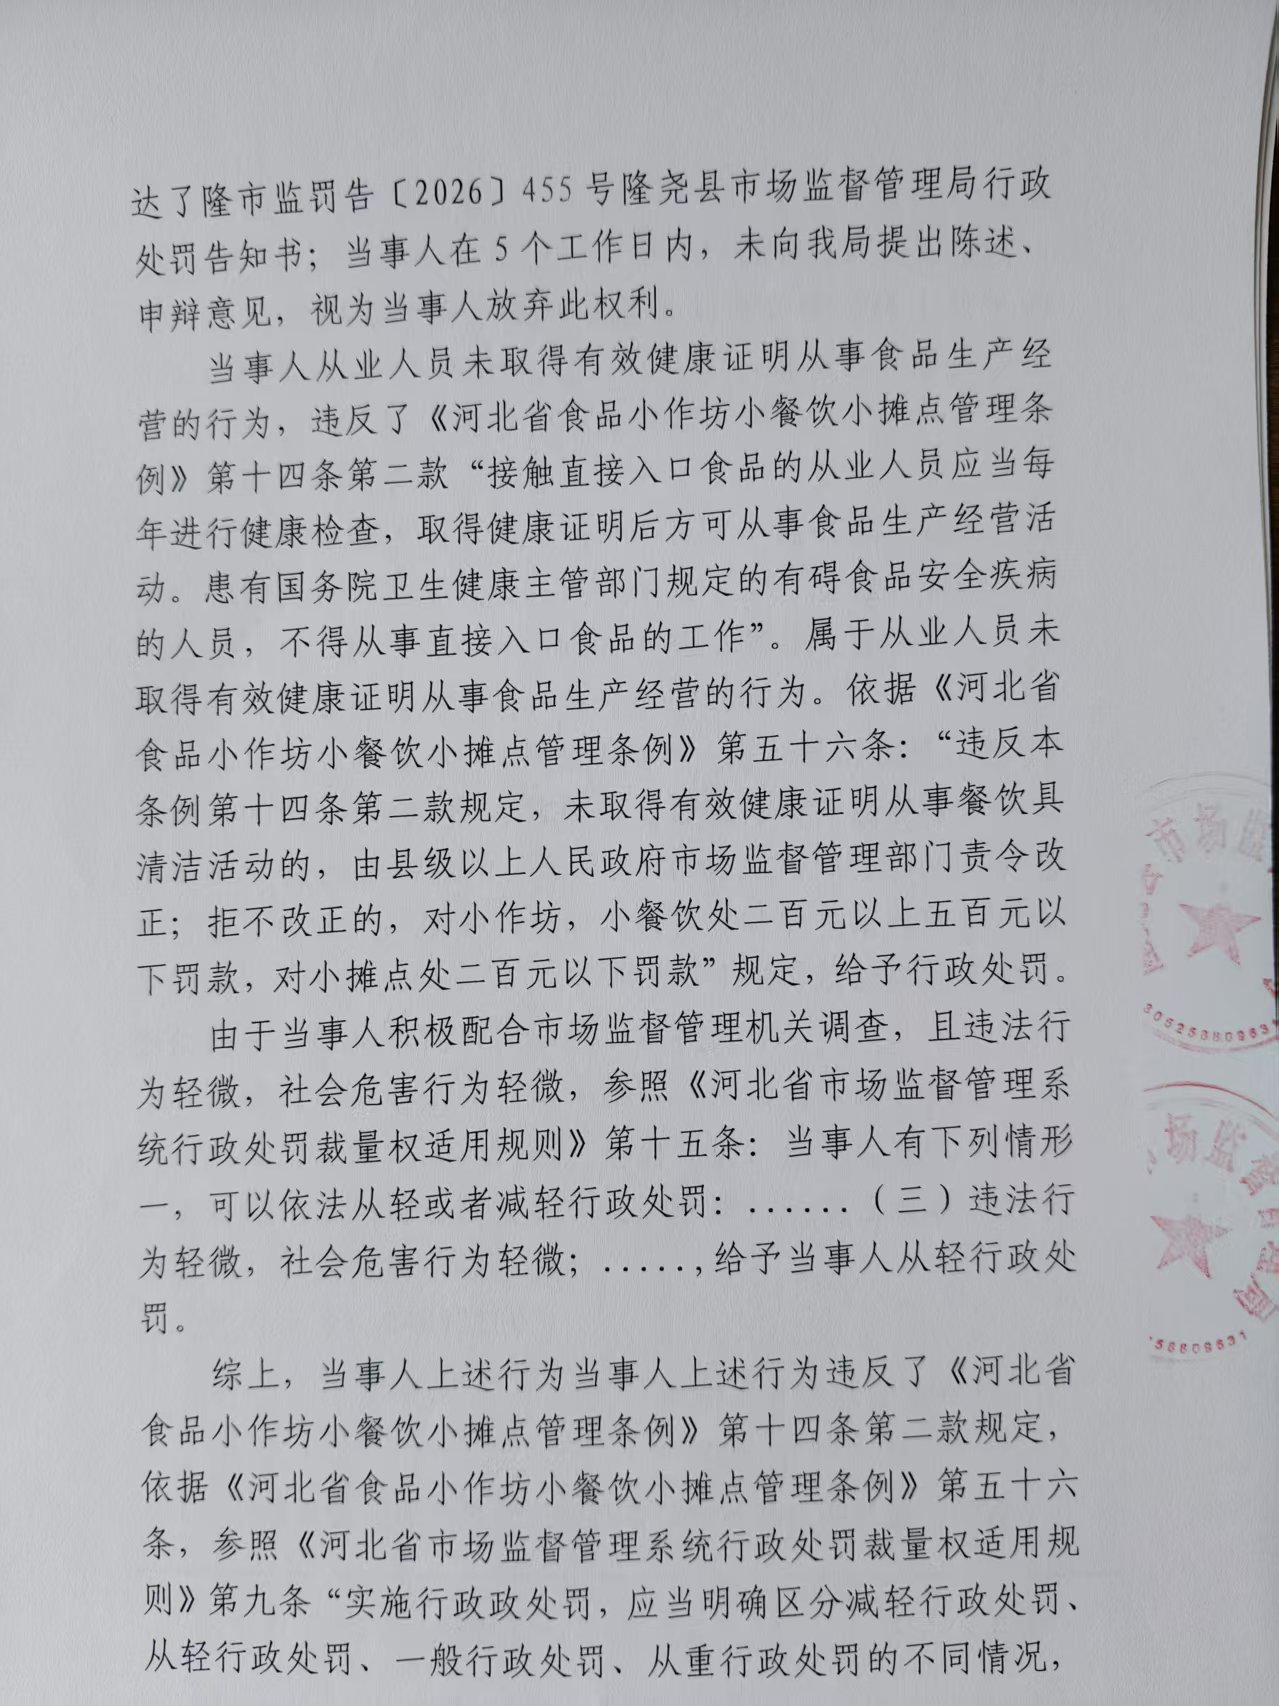 达了隆市监罚告〔2026〕455号隆尧县市场监督管理局行政
处罚告知书；当事人在5个工作日内，未向我局提出陈述、
申辩意见，视为当事人放弃此权利。
当事人从业人员未取得有效健康证明从事食品生产经
营的行为，违反了《河北省食品小作坊小餐饮小摊点管理条
例》第十四条第二款“接触直接入口食品的从业人员应当每
年进行健康检查，取得健康证明后方可从事食品生产经营活
动。患有国务院卫生健康主管部门规定的有碍食品安全疾病
的人员，不得从事直接入口食品的工作”。属于从业人员未
取得有效健康证明从事食品生产经营的行为。依据《河北省
食品小作坊小餐饮小摊点管理条例》第五十六条：“违反本
条例第十四条第二款规定，未取得有效健康证明从事餐饮具
清洁活动的，由县级以上人民政府市场监督管理部门责令改
正；拒不改正的，对小作坊，小餐饮处二百元以上五百元以
下罚款，对小摊点处二百元以下罚款”规定，给予行政处罚。
由于当事人积极配合市场监督管理机关调查，且违法行
为轻微，社会危害行为轻微，参照《河北省市场监督管理系
统行政处罚裁量权适用规则》第十五条：当事人有下列情形
一，可以依法从轻或者减轻行政处罚：......（三）违法行
为轻微，社会危害行为轻微；.....,给予当事人从轻行政处
罚。
综上，当事人上述行为当事人上述行为违反了《河北省
食品小作坊小餐饮小摊点管理条例》第十四条第二款规定，
依据《河北省食品小作坊小餐饮小摊点管理条例》第五十六
条，参照《河北省市场监督管理系统行政处罚裁量权适用规
则》第九条“实施行政政处罚，应当明确区分减轻行政处罚、
从轻行政处罚、一般行政处罚、从重行政处罚的不同情况，
市场监
场监督管理局